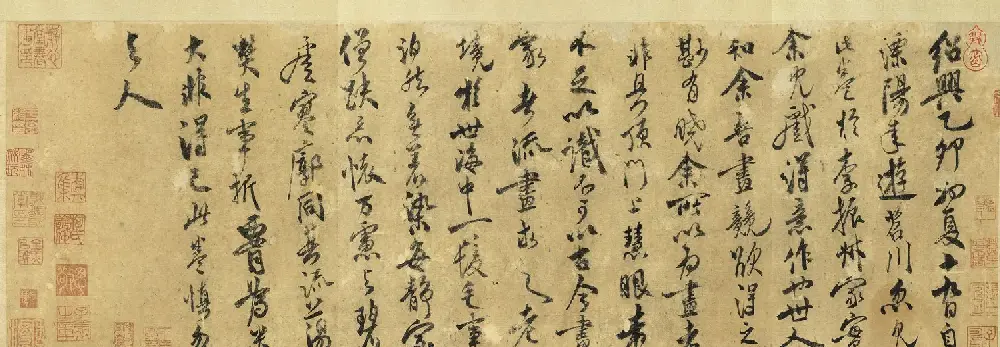 紹興乙卯初夏十九日自
溧陽來遊苕川忽見
此卷於李振叔家實
余兒戲得意作也世人
知余善畫競欲得之
尠有曉余所以為畫者
非具頂門上慧眼者
不足以識不可以古今畫
家者流畫求之老
境於世海中一髮毛事
泊然無著染每靜室
僧趺忘懷萬慮與碧
虛寥廓同其流蕩
焚生事折腰為米
大非得已此卷慎勿
與人